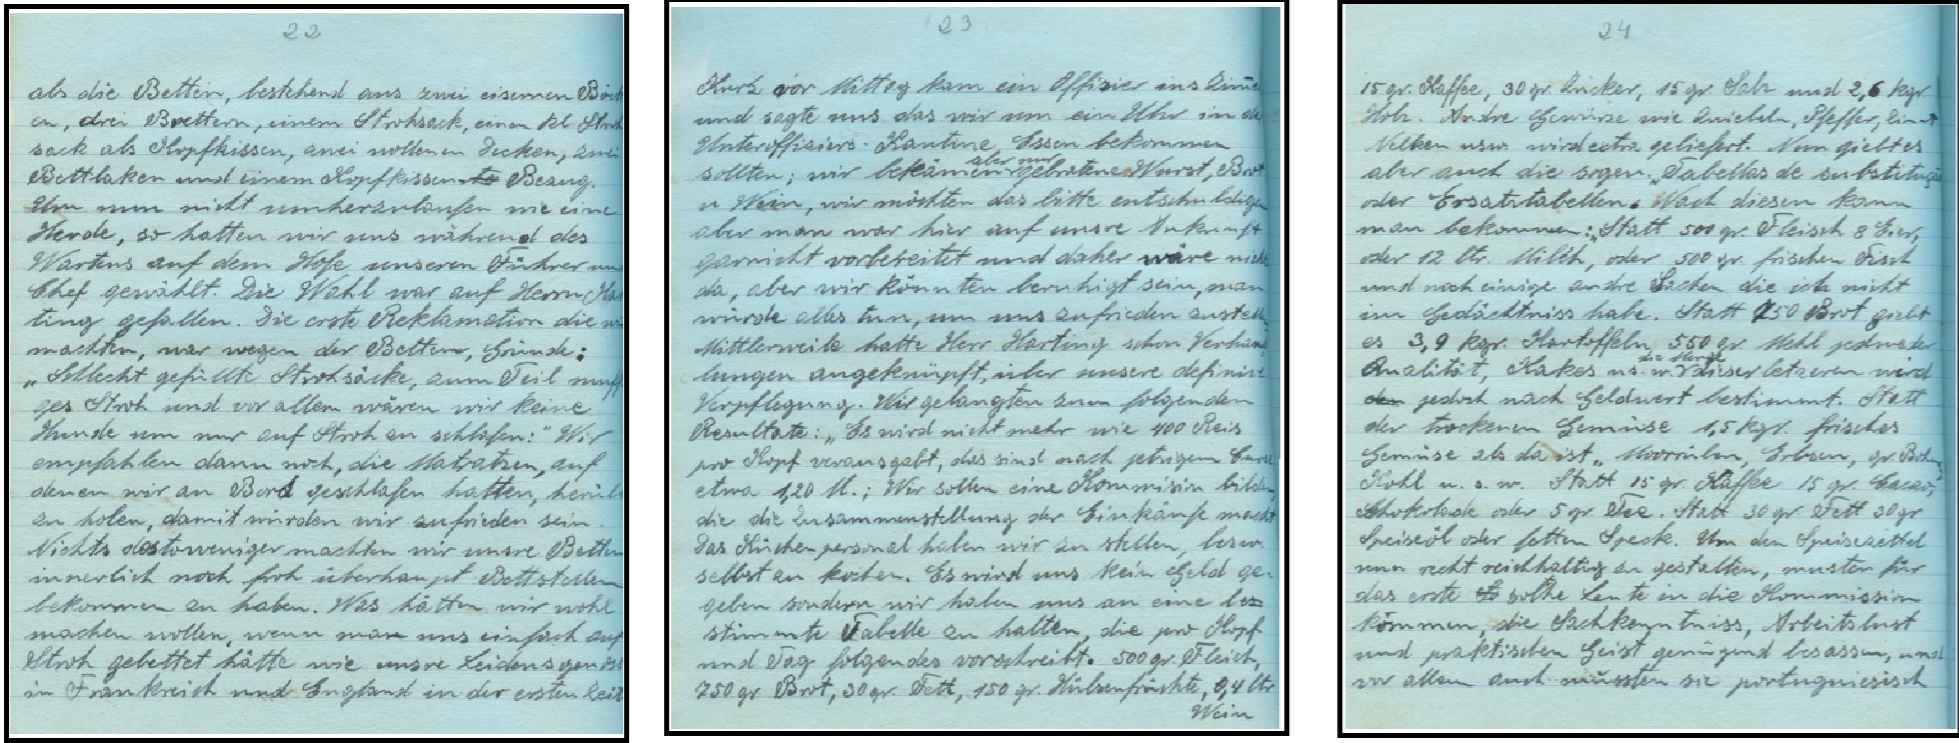 22
als die Betten, bestehend aus zwei eisernen Böck
en, drei Brettern, einem Strohsack, einen kl Stroh
sack als Kopfkissen, zwei wollenen Decken, zwei
Bettlaken und einem Kopfkissen Bezug.
Um nun nicht umherzulaufen wie eine
Herde, so hatten wir uns während des
Wartens auf dem Hofe, unseren Führer un
Chef gewählt. Die Wahl war auf Herrn Har
ting gefallen. Die erste Reklamation die wir
machten, war wegen der Betten, Gründe:
„Schlecht gefüllte Strohsäcke, zum Teil muff
ges Stroh und vor allem wären wir keine
Hunde um nur auf Stroh zu schlafen:" Wir
empfahlen dann noch, die Matratzen, auf
denen wir an Bord geschlafen hatten, herüb
zu holen, damit würden wir zufrieden sein.
Nichts destoweniger machten wir unsre Betten
innerlich noch froh überhaupt Bettstellen
bekommen zu haben. Was hätten wir wohl
machen wollen, wenn man uns einfach auf
Stroh gebettet hätte wie unsre Leidensgenoss
in Frankreich und England in der ersten Zeit
23
Kurz vor Mittag kam ein Offizier ins Zimm
und sagte uns das wir um ein Uhr in der
Unteroffiziers-Kantine, Essen bekommen
sollten; wir bekämen aber nur gebratene Wurst, Brot
u Wein, wir möchten das bitte entschuldigen
aber man war hier auf unsre Ankunft
garnicht vorbereitet und daher wäre nichts
da, aber wir könnten beruhigt sein, man
würde alles tun, um uns zufrieden zustell
Mittlerweile hatte Herr Harting schon Verhand
lungen angeknüpft, über unsere definiv
Verpflegung. Wir gelangten zum folgenden
Resultate: „Es wird nicht mehr wie 400 Reis
pro Kopf verausgabt, das sind nach jetzigem Curse
etwa 1,20 M.; Wir sollen eine Kommision bilden,
die die Zusammenstellung der Einkäufe macht
Das Küchenpersonal haben wir zu stellen, bezw.
selbst zu kochen. Es wird uns kein Geld ge-
geben sondern wir haben uns an eine be
stimmte Tabelle zu halten, die pro Kopf
und Tag folgendes vorschreibt. 500 gr. Fleich,
750 gr Brot, 30 gr. Fett, 150 gr. Hülsenfrüchte, 0,4 ltr
Wein
24
15 gr. Kaffee, 30 gr. Zucker, 15 gr. Salz und 2,6 kgr
Holz. Andre Gewürze wie Zwiebeln, Pfeffer, Zimt
Nelken usw. wird extra geliefert. Nun giebt es
aber auch die sogen. „Tabellas de substituiçao
oder Ersatztabellen. Nach diesen kann
man bekommen: „Statt 500 gr. Fleisch 8 Eier,
oder 12 ltr. Milch, oder 500 gr. frischen Fisch
und noch einige andre Sachen die ich nicht
im Gedächtniss habe. Statt 750 Brot giebt
es 3,9 kgr. Kartoffeln, 550 gr. Mehl jedweder
Qualität, Kakes u.s.w. die Menge dieser letzeren wird
jedoch nach Geldwert bestimmt. Statt
der trockenen Gemüse 1,5 kgr. frisches
Gemüse als da ist „ Moorrüben, Erbsen, gr. Bohn,
Kohl u.s.w. Statt 15 gr. Kaffee 15 gr. Cacao,
Schokolade oder 5 gr. Tee. Statt 30 gr Fett 30 gr
Speiseöl oder fetten Speck. Um den Speisezettel
nun recht reichhaltig zu gestalten, musten für
das erste solche Leute in die Kommission
kommen, die Sachkenntniss, Arbeitslust
und praktischen Geist genügend besassen, und
vor allem auch müssten sie portuguiesisch